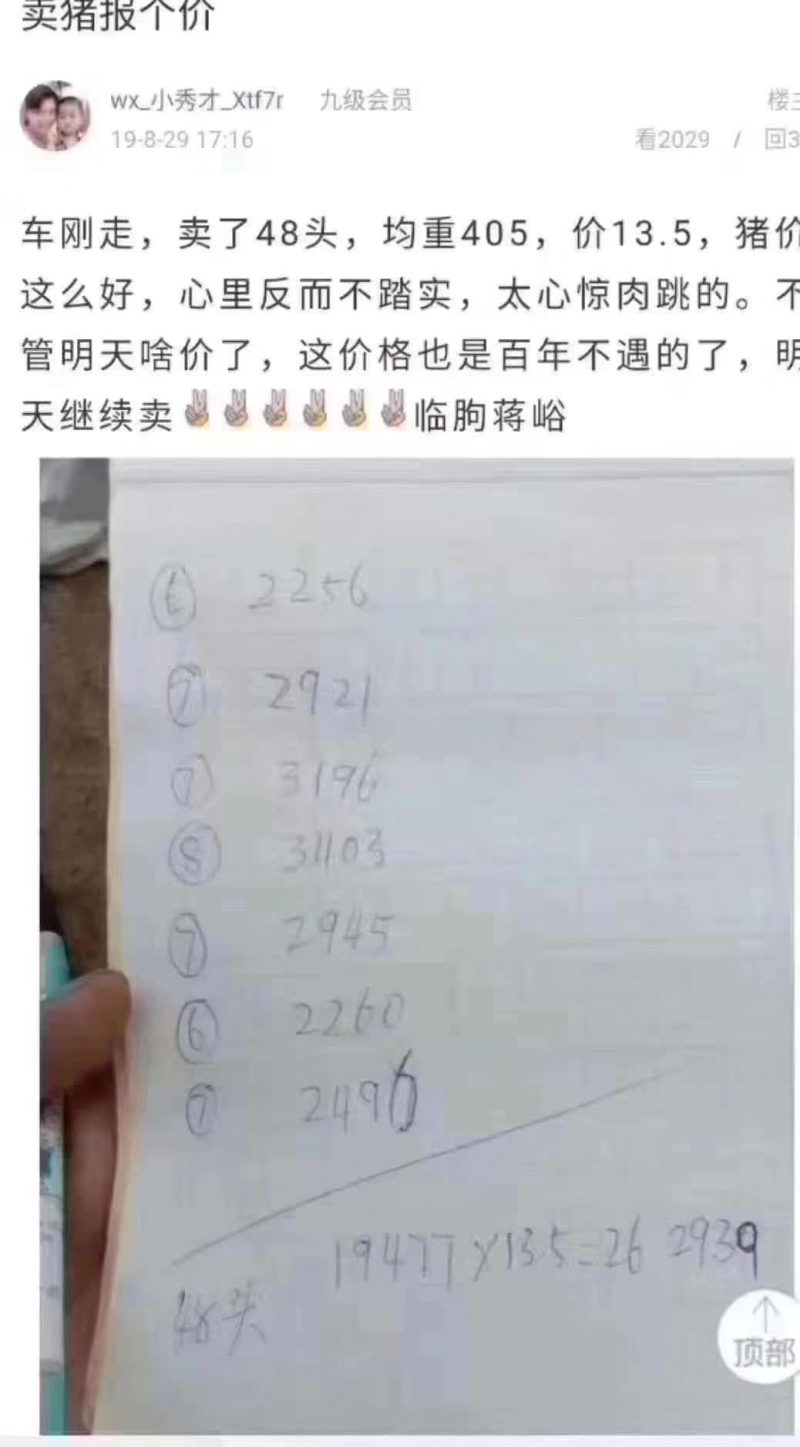 卖猪报个价
wx_小秀才_Xtf7r 九级会员 楼主
19-8-29 17:16 看2029 / 回3
车刚走，卖了48头，均重405，价13.5，猪价
这么好，心里反而不踏实，太心惊肉跳的。不
管明天啥价了，这价格也是百年不遇的了，明
天继续卖✌✌✌✌✌✌临朐蒋峪
⑥ 2256
⑦ 2921
⑦ 3196
⑧ 3403
⑦ 2945
⑥ 2260
⑦ 2496
19477×13.5=262939
48头
顶部